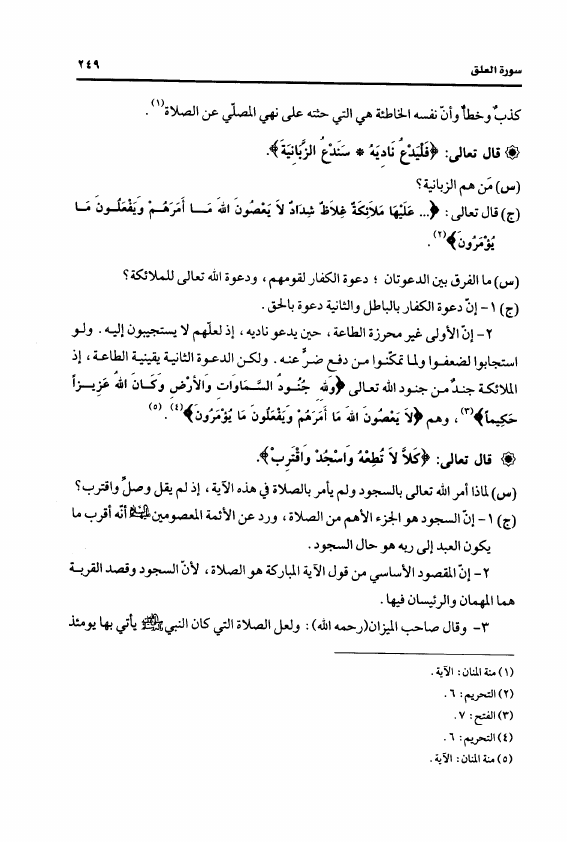 سورة العلق
٢٤٩
كذبٌ وخطأ وأنّ نفسه الخاطئة هي التي حثته على نهي المصلّي عن الصلاة(١).
۞ قال تعالى: ﴿فَلْيَدْعُ نَادِيَهُ * سَنَدْعُ الزَّبَانِيَةَ﴾.
(س) مَن هم الزبانية؟
(ج) قال تعالى: ﴿... عَلَيْهَا مَلَائِكَةٌ غِلَاظٌ شِدَادٌ لَا يَعْصُونَ اللهَ مَـا أَمَرَهُـمْ وَيَفْعَلُـونَ مَـا
يُؤْمَرُونَ﴾(٢).
(س) ما الفرق بين الدعوتان ؛ دعوة الكفار لقومهم، ودعوة الله تعالى للملائكة؟
(ج) ١- إنّ دعوة الكفار بالباطل والثانية دعوة بالحق.
٢- إن الأولى غير محرزة الطاعة، حين يدعو ناديه، إذ لعلّهم لا يستجيبون إليه. ولـو
استجابوا لضعفوا ولما تمكّنوا مـن دفع ضـرٍّ عنـه. ولكـن الدعـوة الثانيـة يقينيـة الطاعـة، إذ
الملائكة جندٌ مـن جنـود الله تعـالى ﴿وَلِلَّهِ جُنُـودُ السَّمَاوَاتِ وَالْأَرْضِ وَكَـانَ اللهُ عَزِيـزاً
حَكِيماً﴾(٣)، وهم ﴿لَا يَعْصُونَ اللهَ مَا أَمَرَهُمْ وَيَفْعَلُونَ مَا يُؤْمَرُونَ﴾(٤).(٥)
۞ قال تعالى: ﴿كَلَّا لَا تُطِعْهُ وَاسْجُدْ وَاقْتَرِبْ﴾.
(س) لماذا أمر الله تعالى بالسجود ولم يأمر بالصلاة في هذه الآية، إذ لم يقل وصلِّ واقترب؟
(ج) ١- إنّ السجود هو الجزء الأهم من الصلاة، ورد عن الأئمة المعصومين أنّه أقرب ما
يكون العبد إلى ربه هو حال السجود.
٢- إنّ المقصود الأساسي من قول الآية المباركة هو الصلاة، لأنّ السجود وقصد القربـة
هما المهمان والرئيسان فيها.
٣- وقال صاحب الميزان(رحمه الله): ولعل الصلاة التي كان النبي يأتي بها يومئذ
(١) منة المنان: الآية.
(٢) التحريم: ٦.
(٣) الفتح: ٧.
(٤) التحريم: ٦.
(٥) منة المنان: الآية.